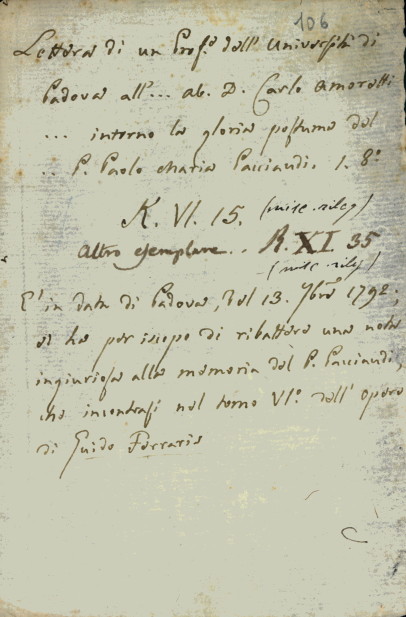 106
Lettera di un Prof.e dell' Università di
Padova all'... ab. D. Carlo Amoretti
... intorno la gloria postuma del
.. P. Paolo Maria Pacciaudi. 1. 8.°
K. VI. 15. (misc. rileg)
Altro esemplare .. R. XI 35
(misc. rileg)
E' in data di Padova, del 13. 7bre 1792;
ed ha per iscopo di ribattere una nota
ingiuriosa alla memoria del P. Pacciaudi,
che incontrasi nel tomo VI.° dell' Opere
di Guido Ferraris